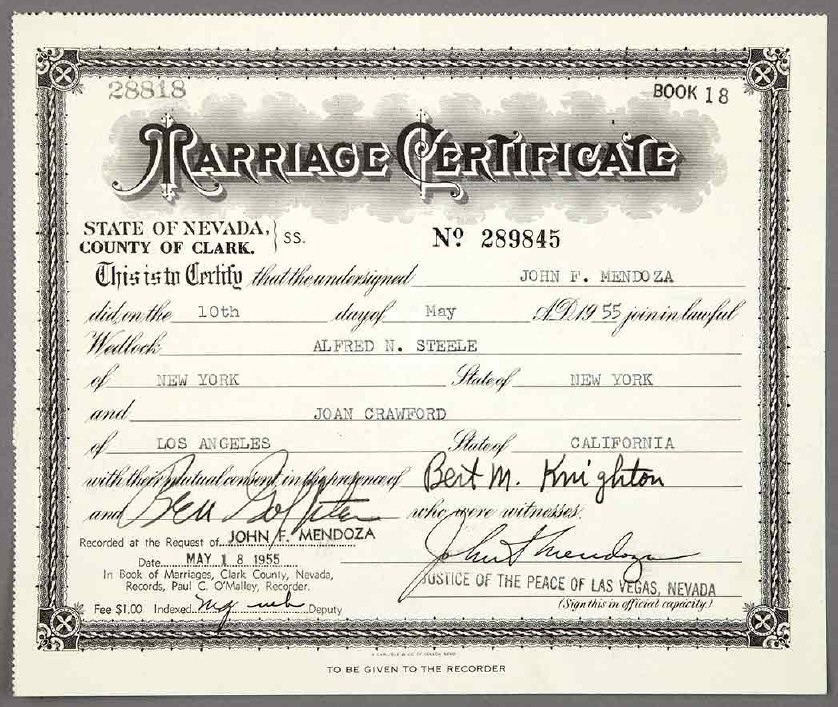 28818
BOOK 18
MARRIAGE CERTIFICATE
STATE OF NEVADA,
COUNTY OF CLARK. } SS.
No 289845
This is to Certify that the undersigned JOHN F. MENDOZA
did, on the 10th day of May A.D. 1955 join in lawful
Wedlock ALFRED N. STEELE
of NEW YORK State of NEW YORK
and JOAN CRAWFORD
of LOS ANGELES State of CALIFORNIA
with their mutual consent, in the presence of Bert M. Knighton
and Ben who were witnesses.
Recorded at the Request of JOHN F. MENDOZA
Date MAY 18 1955
In Book of Marriages, Clark County, Nevada,
Records, Paul C. O'Malley, Recorder.
Fee $1.00 Indexed Deputy
John F Mendoza
JUSTICE OF THE PEACE OF LAS VEGAS, NEVADA
(Sign this in official capacity.)
TO BE GIVEN TO THE RECORDER